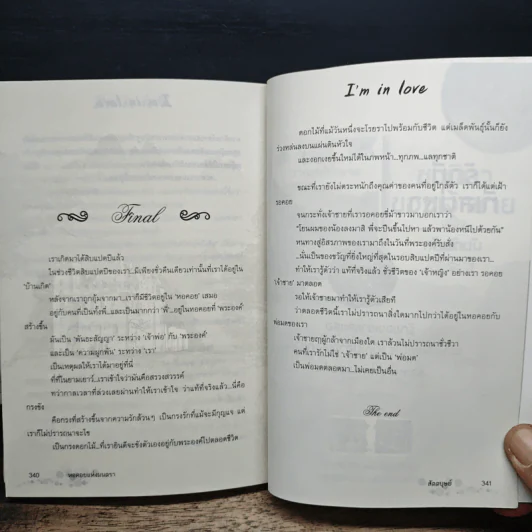 Final
เราเกิดมาได้สิบแปดปีแล้ว
ในช่วงชีวิตสิบแปดปีของเรา..มีเพียงชั่วคืนเดียวเท่านั้นที่เราได้อยู่ใน
'บ้านเกิด'
หลังจากเราถูกอุ้มจากมา..เราก็มีชีวิตอยู่ใน 'หอคอย' เสมอ
อยู่กับคนที่เป็นทั้งพี่...และเป็นมากกว่า 'พี่'...อยู่ในหอคอยที่ 'พระองค์'
สร้างขึ้น
มันเป็น 'พันธะสัญญา' ระหว่าง 'เจ้าพ่อ' กับ 'พระองค์'
และเป็น 'ความผูกพัน' ระหว่าง 'เรา'
เป็นเหตุผลให้เราได้มาอยู่ที่นี่
ที่ที่ในยามเยาว์..เราเข้าใจว่ามันคือสรวงสวรรค์
ทว่ากาลเวลาที่ล่วงเลยผ่านทำให้เราเข้าใจ ว่าแท้ที่จริงแล้ว...นี่คือ
กรงขัง
คือกรงที่สร้างขึ้นจากความรักล้วนๆ เป็นกรงรักที่แม้จะมีกุญแจ แต่
เราก็ไม่ปรารถนาจะไข
เป็นกรงดอกไม้...ที่เรายินดีจะขังตัวเองอยู่กับพระองค์ไปตลอดชีวิต
340
หอคอยแห่งมนตรา
I'm in love
ดอกไม้ที่แม้วันหนึ่งจะโรยราไปพร้อมกับชีวิต แต่เมล็ดพันธุ์นั้นก็ยัง
ร่วงหล่นลงบนแผ่นดินหัวใจ
และงอกเงยขึ้นใหม่ได้ในภพหน้า...ทุกภพ...แลทุกชาติ
ขณะที่เรายังไม่ตระหนักถึงคุณค่าของคนที่อยู่ใกล้ตัว เราก็ได้แต่เฝ้า
รอคอย
จนกระทั่งเจ้าชายที่เรารอคอยขี่ม้าขาวมาบอกเราว่า
"โยนผมของน้องลงมาสิ พี่จะปีนขึ้นไปหา แล้วพาน้องหนีไปด้วยกัน"
หนทางสู่อิสรภาพของเรามาถึงในวันที่พระองค์รับสั่ง
..นั่นเป็นของขวัญที่ยิ่งใหญ่ที่สุดในรอบสิบแปดปีที่ผ่านมาของเรา...
ทำให้เรารู้ตัวว่า แท้ที่จริงแล้ว ชั่วชีวิตของ 'เจ้าหญิง' อย่างเรา รอคอย
'เจ้าชาย' มาตลอด
รอให้เจ้าชายมาทำให้เรารู้ตัวเสียที
ว่าตลอดชีวิตนี้เราไม่ปรารถนาสิ่งใดมากไปกว่าได้อยู่ในหอคอยกับ
พ่อมดของเรา
เจ้าชายฤๅผู้กล้าจากเมืองใด เราล้วนไม่ปรารถนาชั่วชีวา
คนที่เรารักไม่ใช่ 'เจ้าชาย' แต่เป็น 'พ่อมด'
เป็นพ่อมดตลอดมา...ไม่เคยเป็นอื่น
The end
341